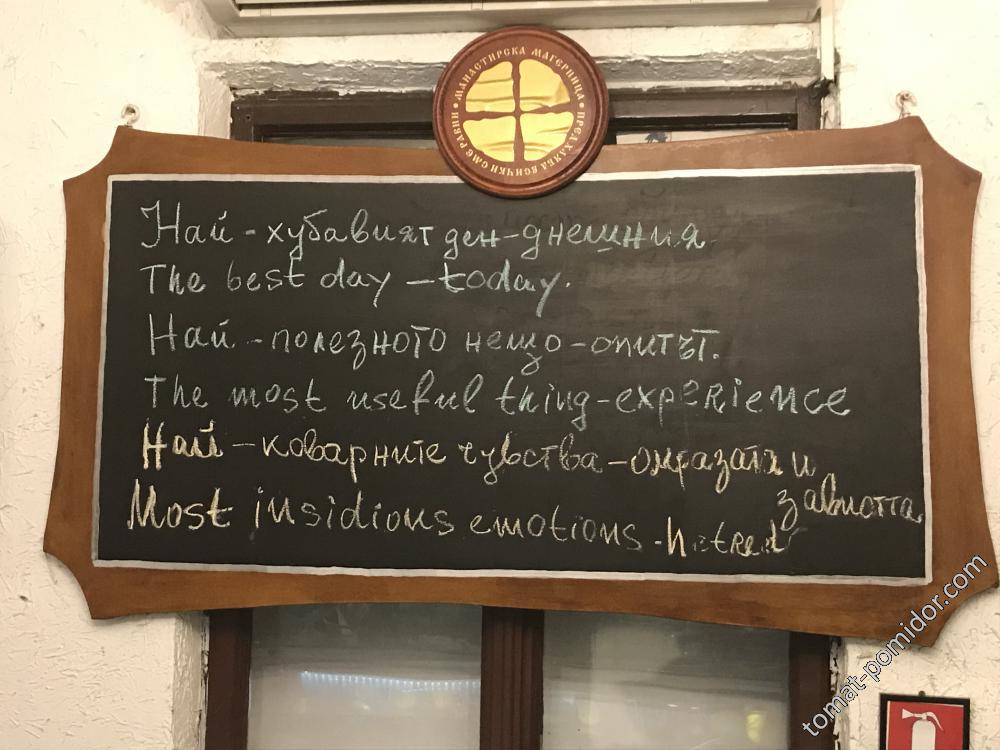 МАНАСТИРСКА МАГЕРНИЦА • ПРЕД ХЛЯБА ВСИЧКИ СМЕ РАВНИ •
Най-хубавият ден-днешния.
The best day - today.
Най-полезното нещо-опитът.
The most useful thing-experience
Най-коварните чувства-омразата и
завистта
Most insidious emotions-hatred
tomat-pomidor.com